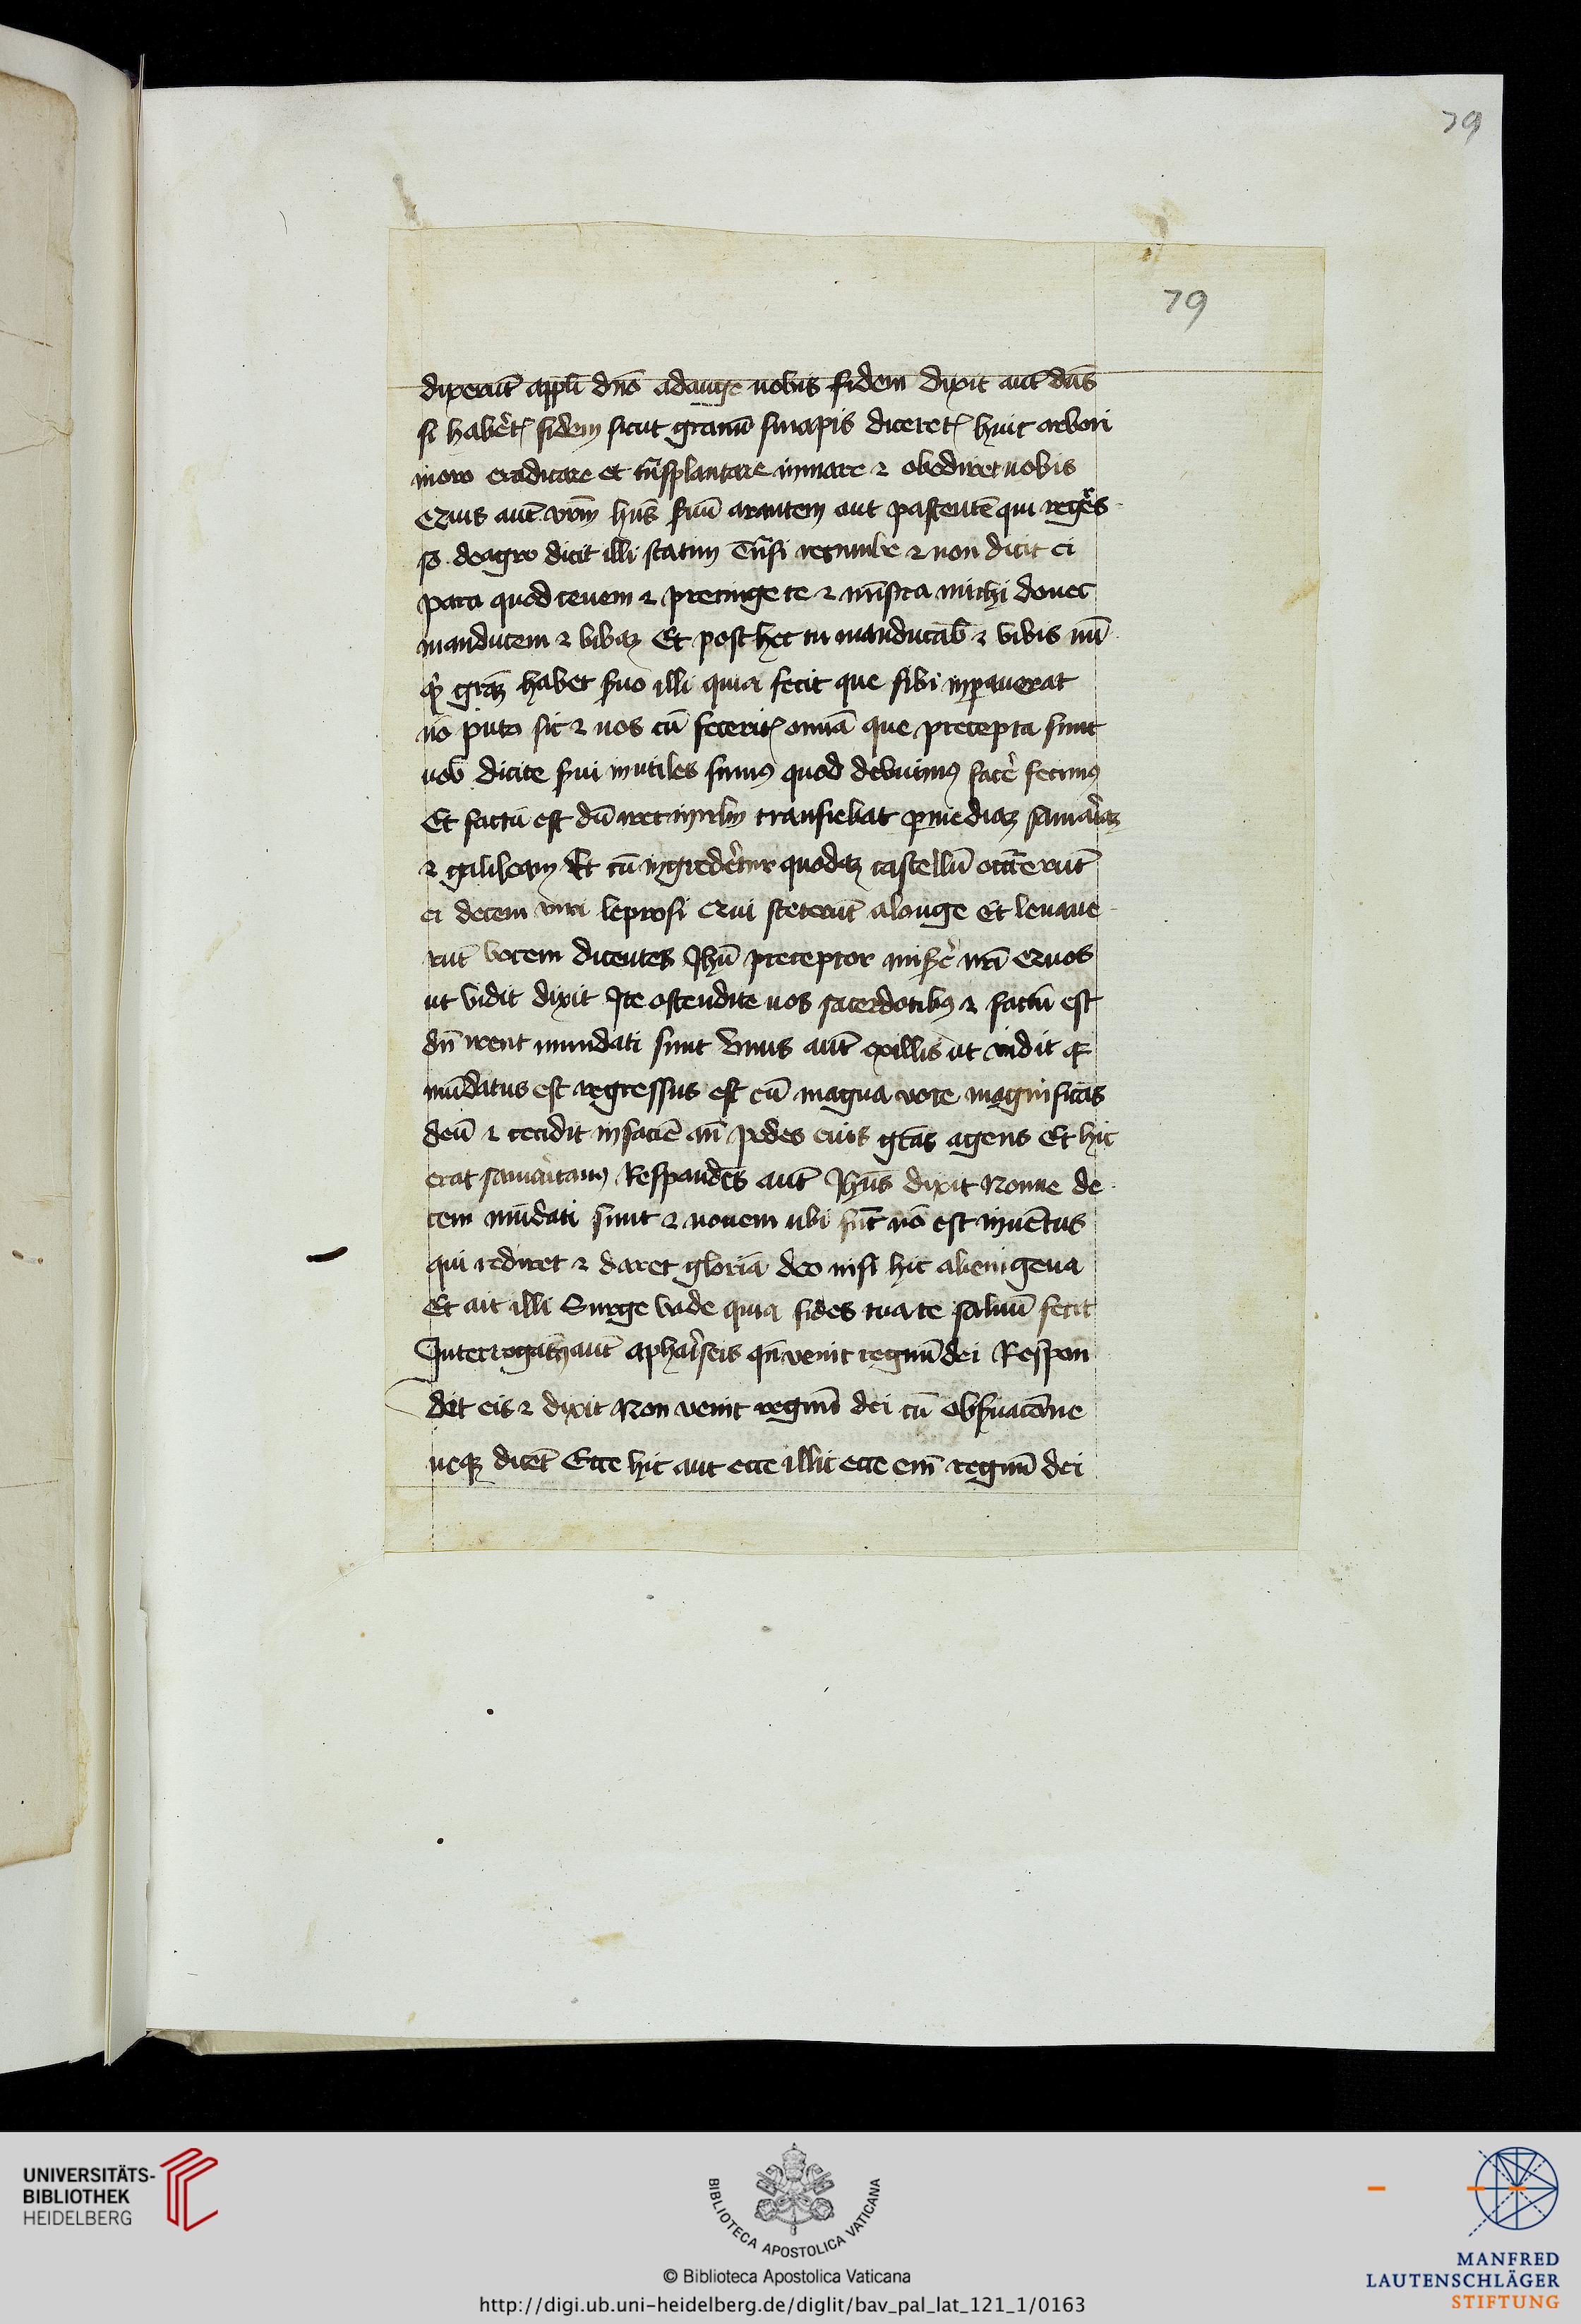 79
79
dixerūt appl̄i dn̄o adauge nobis fidem dixit aūt dn̄s
si haber̄etꝭ fidem sicut granū sinapis diceretꝭ huic arbori
moro eradicare et trāsplantare inmare ⁊ obediret uobis
Quis aūt vrm̄ hn̄s seruū arantem aut pascentē qui regres
so deagro dicit illi statim trāsi recumbe ⁊ non dicit ei
para quod cenem ⁊ precinge te ⁊ mīstra michi donec
manducem ⁊ bibaꝫ Et post hec tu manducab̄ ⁊ bibis nū
qͥd grāꝫ habet s̄uo illi quia fecit que sibi inꝑauerat
nō puto sic ⁊ uos cū feceritꝭ omīa que precepta sunt
uob̄ dicite s̄ui inutiles sumꝰ quod debuimꝰ facer̄ fecimꝰ
Et factū est dū iret inrlm̄ transiebat ꝑmediaꝫ samariaꝫ
⁊ galileam Et cū ingreder̄etur quodaꝫ castellū occr̄rerūt
ei decem viri leprosi Qui steterūt alonge Et leuaue
rūt vocem dicentes Jhū preceptor miser̄e nr̄i Quos
ut vidit dixit Ite ostendite uos sacerdotibꝰ ⁊ factū est
dū irent mundati sunt Vnus aūt exillis ut vidit qꝛ
mūdatus est regressus est cū magna voce magnificās
deū ⁊ cecidit infaciē an̄ pedes eius gr̄as agens Et hic
erat samaritanꝰ Respondēs aūt Jhūs dixit Nonne de
cem mūdati sunt ⁊ nouem ubi sūt nō est inuentus
qui rediret ⁊ daret gloriā deo nisi hic alienigena
Et ait illi Surge vade quia fides tua te saluū fecit
Interrogatꝰ aūt apharis̄eis qn̄ venit regnū dei Respon
dit eis ⁊ dixit Non venit regnū dei cū obs̄uacōne
neqꝫ dicēt Ecce hic aut ecce illic ecce em̄ regnū dei
UNIVERSITÄTS-
BIBLIOTHEK
HEIDELBERG
BIBLIOTECA APOSTOLICA VATICANA
© Biblioteca Apostolica Vaticana
http://digi.ub.uni-heidelberg.de/diglit/bav_pal_lat_121_1/0163
MANFRED
LAUTENSCHLÄGER
STIFTUNG